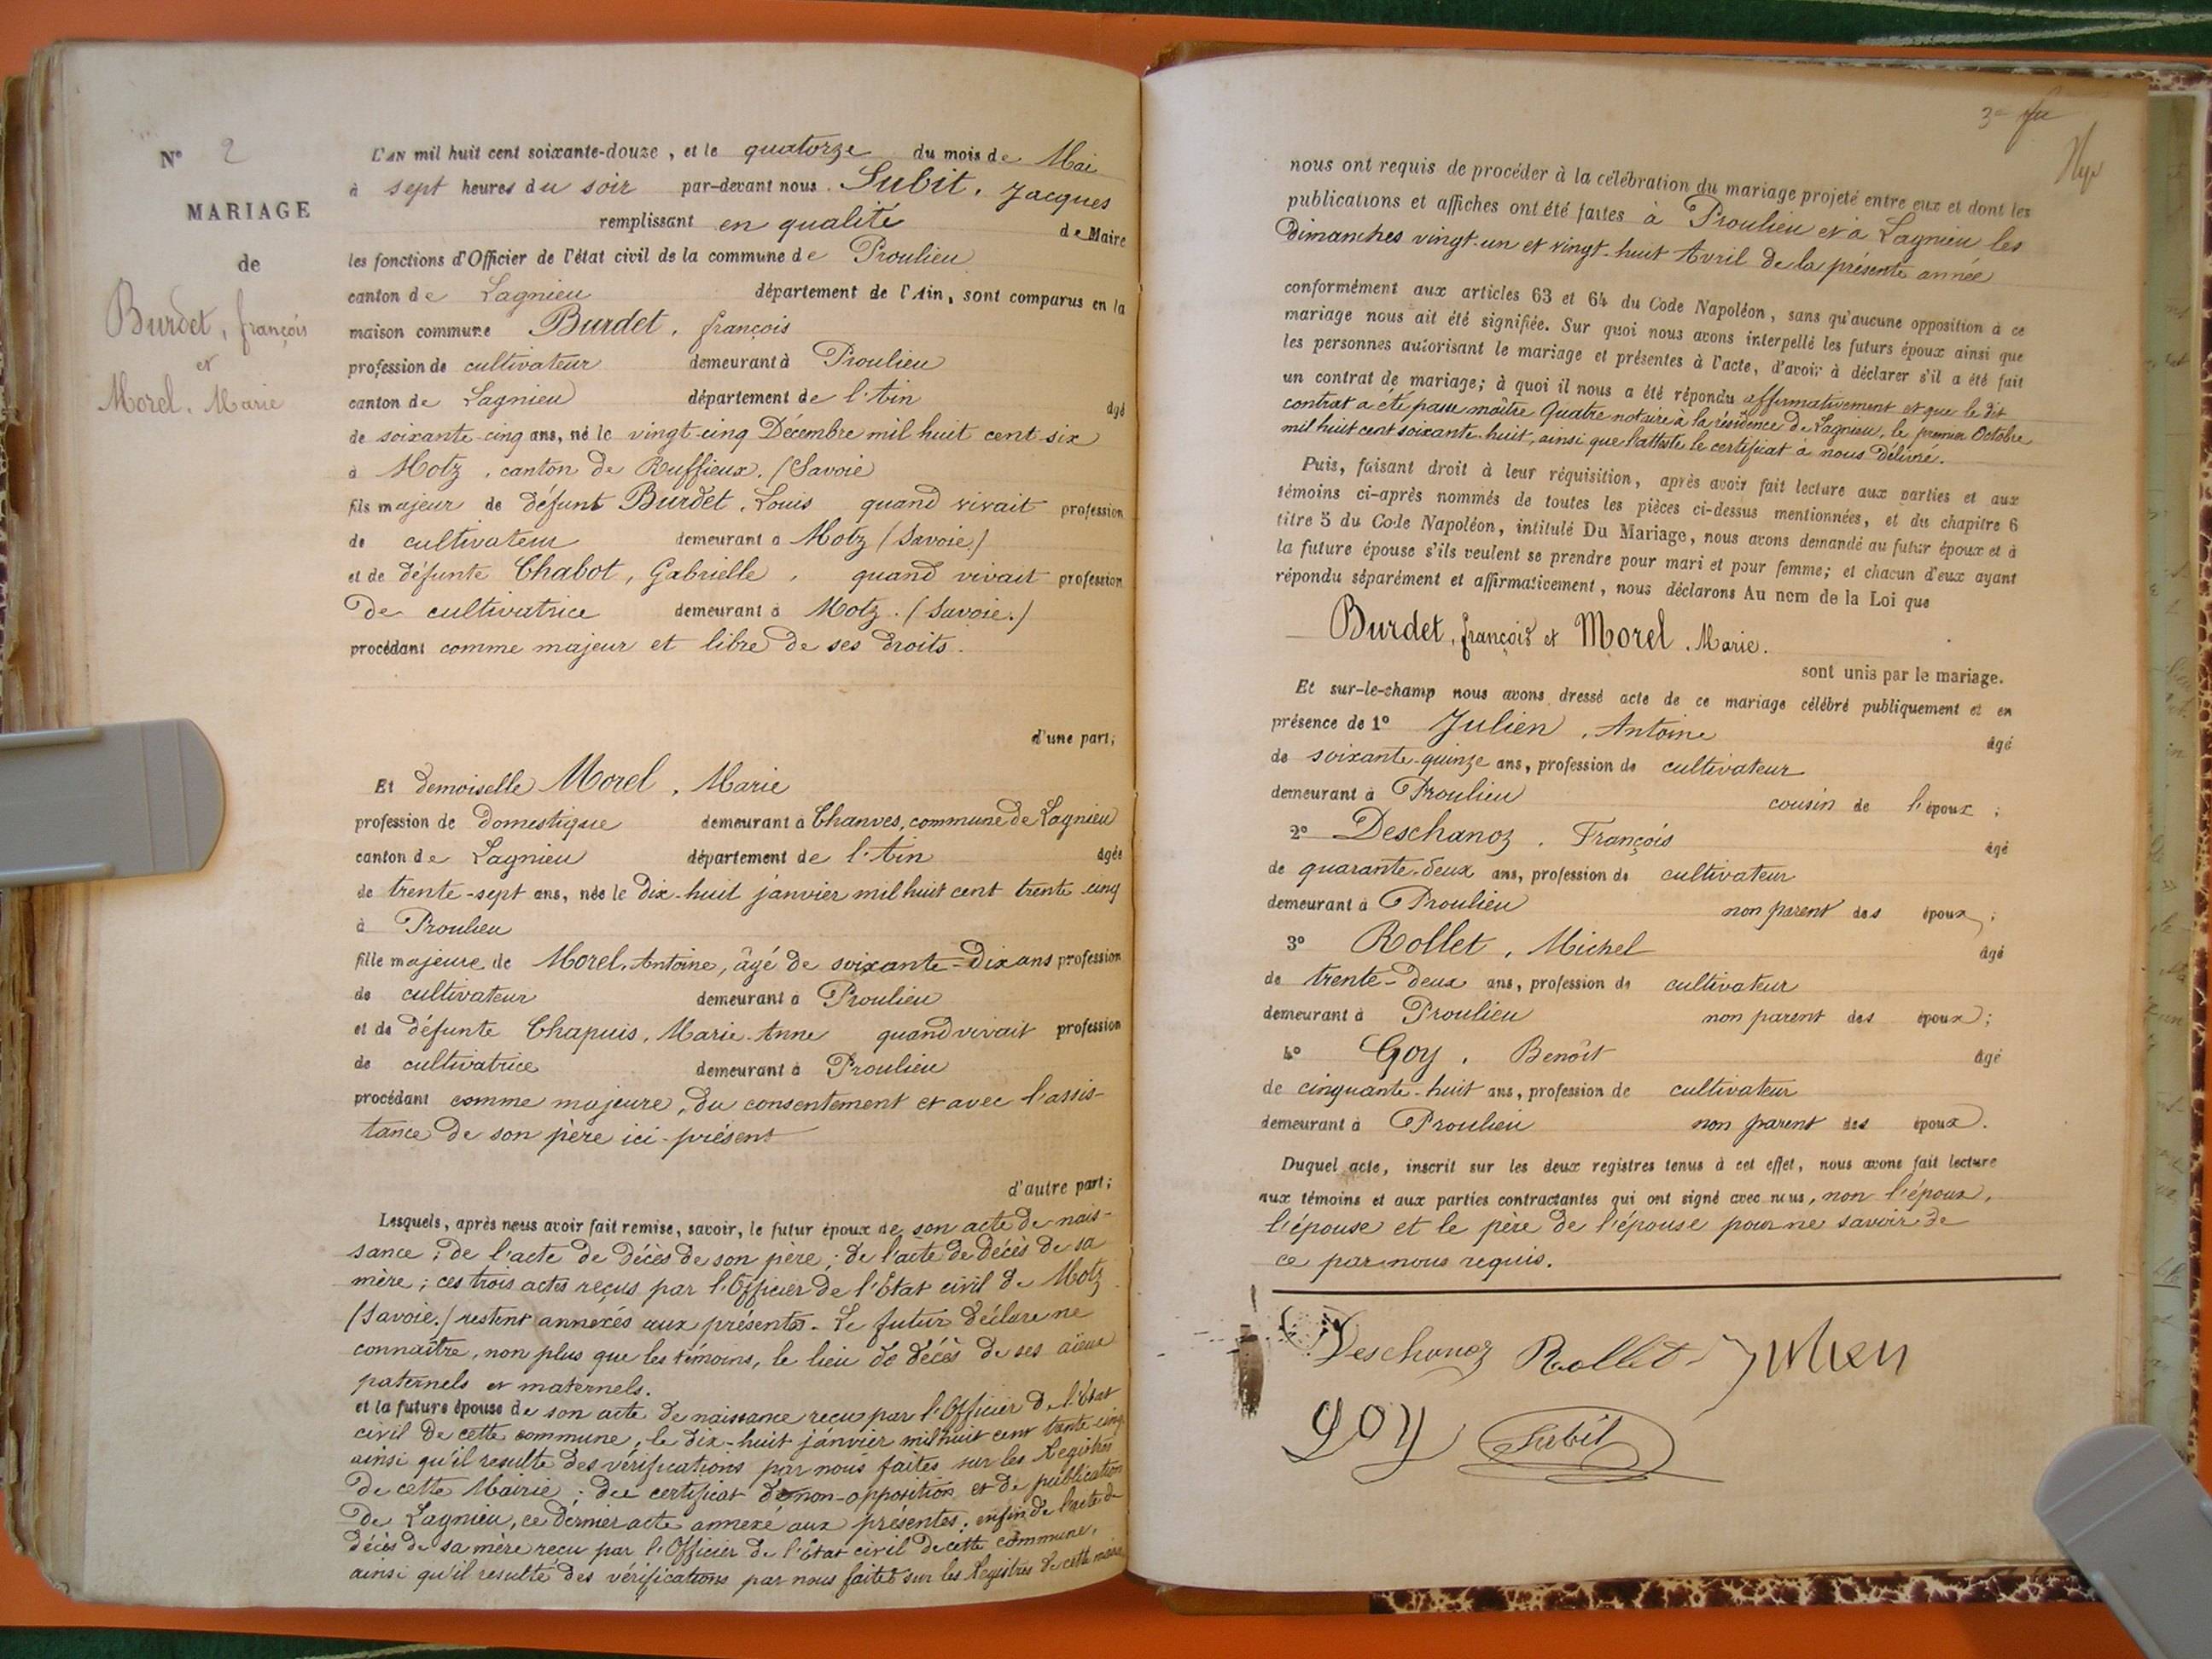 N° 2
MARIAGE
de
Burdet, françois
et
Morel, Marie
L'AN mil huit cent soixante-douze, et le quatorze du mois de Mai
à sept heures du soir par-devant nous Subit, Jacques
remplissant en qualité de Maire
les fonctions d'Officier de l'état civil de la commune de Proulieu
canton de Lagnieu département de l'Ain, sont comparus en la
maison commune Burdet, françois
profession de cultivateur demeurant à Proulieu
canton de Lagnieu département de l'Ain âgé
de soixante-cinq ans, né le vingt-cinq Décembre mil huit cent six
à Motz, canton de Ruffieux, (Savoie)
fils majeur de défunt Burdet, Louis quand vivait profession
de cultivateur demeurant à Motz (Savoie)
et de défunte Chabot, Gabrielle, quand vivait profession
de cultivatrice demeurant à Motz. (Savoie.)
procédant comme majeur et libre de ses droits.
d'une part;
Et demoiselle Morel, Marie
profession de Domestique demeurant à Chanves, commune de Lagnieu
canton de Lagnieu département de l'Ain âgée
de trente-sept ans, née le dix-huit janvier mil huit cent trente-cinq
à Proulieu
fille majeure de Morel, Antoine, âgé de soixante-dix ans profession
de cultivateur demeurant à Proulieu
et de défunte Chapuis, Marie-Anne quand vivait profession
de cultivatrice demeurant à Proulieu
procédant comme majeure, du consentement et avec l'assis-
tance de son père ici-présent
d'autre part;
Lesquels, après nous avoir fait remise, savoir, le futur époux de son acte de nais-
sance; de l'acte de décès de son père; de l'acte de décès de sa
mère; ces trois actes reçus par l'Officier de l'Etat civil de Motz
(Savoie.) restent annexés aux présentes. Le futur déclare ne
connaître, non plus que les témoins, le lieu de décès de ses aïeux
paternels et maternels.
et la future épouse de son acte de naissance reçu par l'Officier de l'Etat
civil de cette commune, le dix-huit janvier mil huit cent trente-cinq
ainsi qu'il résulte des vérifications par nous faites sur les Registres
de cette Mairie; du certificat de non-opposition et de publication
de Lagnieu, ce dernier acte annexé aux présentes; enfin de l'acte de
décès de sa mère reçu par l'Officier de l'Etat civil de cette commune,
ainsi qu'il résulte des vérifications par nous faites sur les Registres de cette mairie
nous ont requis de procéder à la célébration du mariage projeté entre eux et dont les
publications et affiches ont été faites à Proulieu et à Lagnieu les
Dimanches vingt-un et vingt-huit Avril de la présente année
conformément aux articles 63 et 64 du Code Napoléon, sans qu'aucune opposition à ce
mariage nous ait été signifiée. Sur quoi nous avons interpellé les futurs époux ainsi que
les personnes autorisant le mariage et présentes à l'acte, d'avoir à déclarer s'il a été fait
un contrat de mariage; à quoi il nous a été répondu affirmativement et que le dit
contrat a été passé maître Quatre notaire à la résidence de Lagnieu, le premier Octobre
mil huit cent soixante-huit, ainsi que l'atteste le certificat à nous délivré.
Puis, faisant droit à leur réquisition, après avoir fait lecture aux parties et aux
témoins ci-après nommés de toutes les pièces ci-dessus mentionnées, et du chapitre 6
titre 5 du Code Napoléon, intitulé Du Mariage, nous avons demandé au futur époux et à
la future épouse s'ils veulent se prendre pour mari et pour femme; et chacun d'eux ayant
répondu séparément et affirmativement, nous déclarons Au nom de la Loi que
Burdet, françois et Morel, Marie.
sont unis par le mariage.
Et sur-le-champ nous avons dressé acte de ce mariage célébré publiquement et en
présence de 1° Julien, Antoine âgé
de soixante-quinze ans, profession de cultivateur
demeurant à Proulieu cousin de l'époux;
2° Deschanoz, François âgé
de quarante-deux ans, profession de cultivateur
demeurant à Proulieu non parent des époux;
3° Rollet, Michel âgé
de trente-deux ans, profession de cultivateur
demeurant à Proulieu non parent des époux;
4° Goy, Benoît âgé
de cinquante-huit ans, profession de cultivateur
demeurant à Proulieu non parent des époux.
Duquel acte, inscrit sur les deux registres tenus à cet effet, nous avons fait lecture
aux témoins et aux parties contractantes qui ont signé avec nous, non l'époux,
l'épouse et le père de l'épouse pour ne savoir de
ce par nous requis.
Deschanoz Rollet Julien
goy Subit